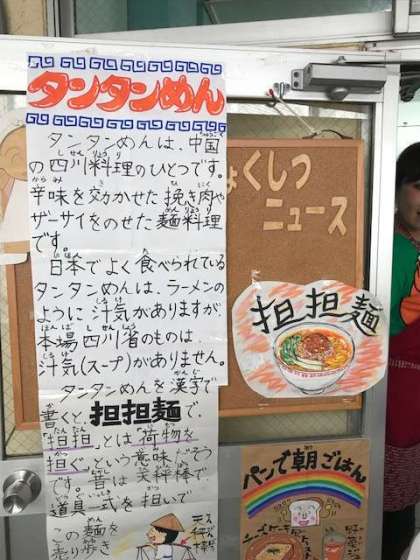 タンタンめん
タンタンめんは、中国
の四川料理のひとつです。
辛味を効かせた挽き肉や
ザーサイをのせた麺料理
です。
日本でよく食べられている
タンタンめんは、ラーメンの
ように汁気がありますが、
本場四川省のものは、
汁気(スープ)がありません。
タンタンめんを漢字で
書くと、担担麺で、
「担担」とは「荷物を
担ぐ」という意味だそう
です。昔は天秤棒で、
道具一式を担いで
この麺を
売り歩き
くしつ
ニュース
担担麺
パンで朝ごはん